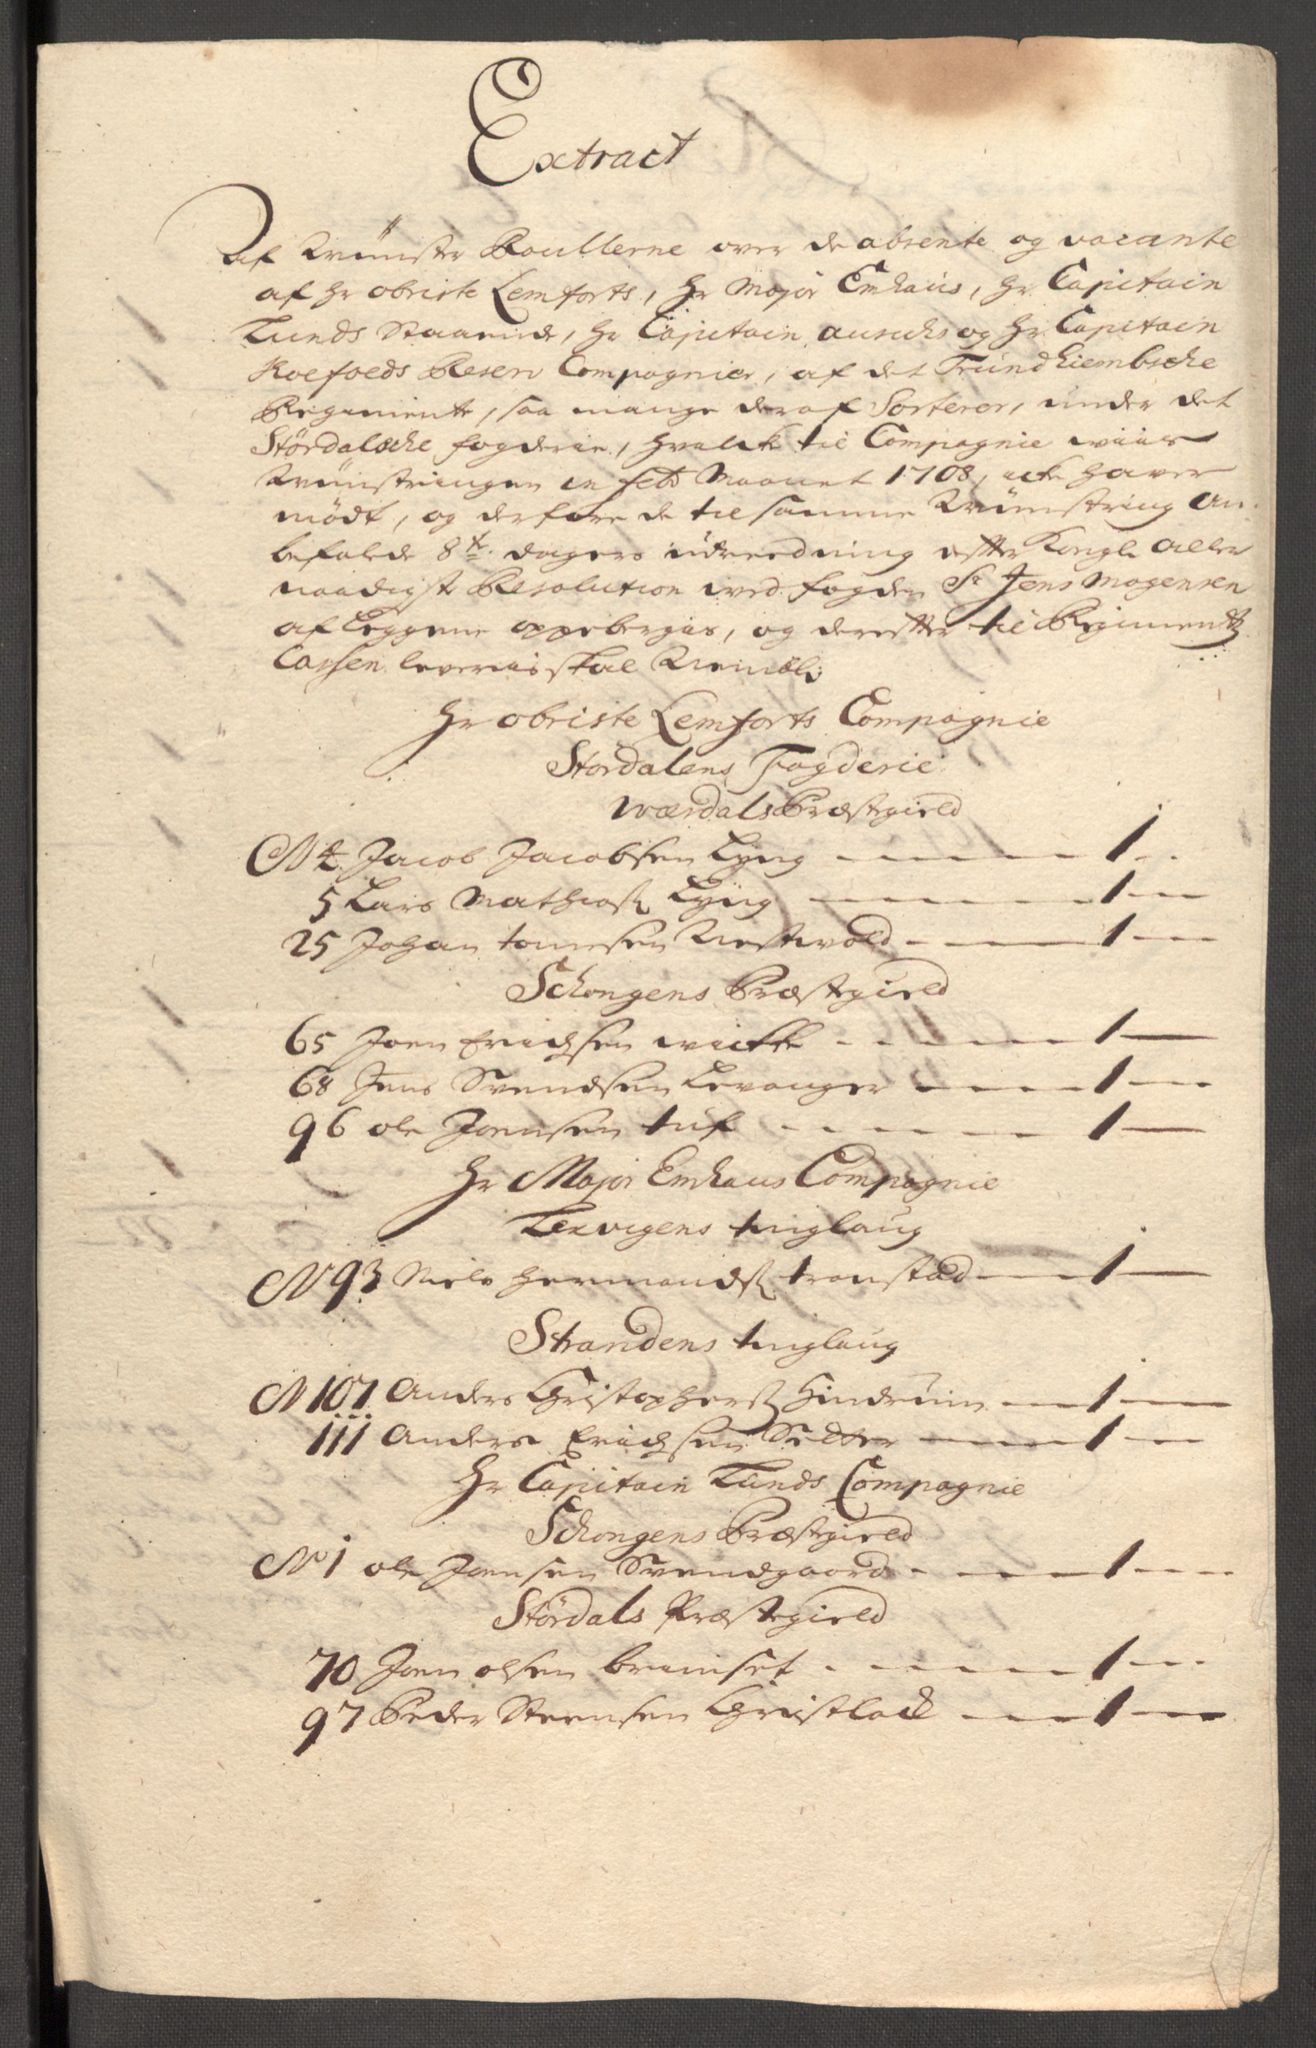 Extract
Af Mynster Roullerne over de absente og vacante
af Hr obriste Lemforts, Hr Major Emhaus, Hr Capitain
Lunds Staaende, Hr Capitain och Hr Capitain
Koefoeds Reserv Compagnier, af det Trundhiembsche
Regimente, saa mange deraf Sorterer, under det
Stördalsche fogderie, hvilche til Compagnie
Mynstringen in feb Maanet 1708, icke haver
mödt, og derfore de til samme Mynstring an-
befalde 8te dagers udreedning efter Kongl. aller
naadigst Resolution ved fogden Sr Jens Mogensen
af Leggene oppebergis, og derefter til Regimentz
Cassen leveris skal Nemblig
Hr obriste Lemforts Compagnie
Stördalens Fogderie
Værdals Præstegield
No 4 Jacob Jacobsen Lyng 1
5 Lars Mathias Lyng 1
25 Johan tomesen Nestvold 1
Schongens Præstegield
65 Joen Erichsen wiche 1
68 Jens Svendsen Levanger 1
96 ole Joensen tuf 1
Hr Major Emhaus Compagnie
Lexvigens tinglaug
No 93 Niels Hermands tronstad 1
Strandens tinglaug
No 107 Anders Christophers Hindrum 1
111 Anders Erichsen Setter 1
Hr Capitain Lunds Compagnie
Schongens Præstegield
No 1 ole Joensen Svendgaard 1
Stördals Præstegield
70 Joen olsen bremset 1
97 Peder Steensen 1